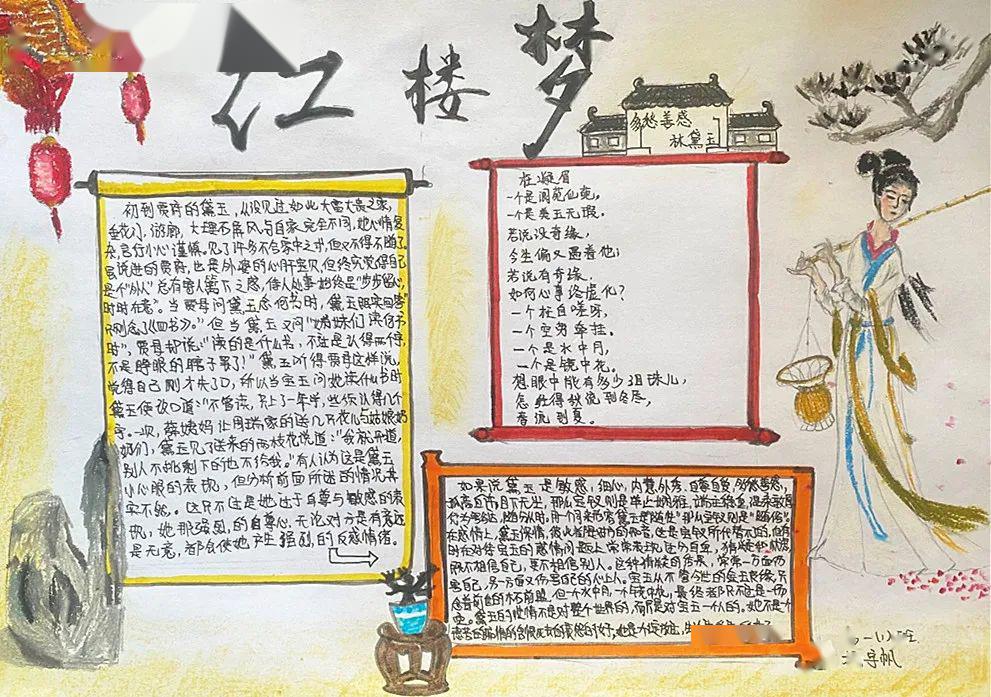 红楼梦
多愁善感
林黛玉
初到贾府的黛玉，从没见过如此大富大贵之家，
垂花门、游廊、大理石屏风，与自家完全不同，她心情复
杂，言行小心谨慎。见了许多不合家中之式，但又不得不随了。
虽说进的贾府，也是外婆的心肝宝贝，但终究觉得自己
是个“外人”总有寄人篱下之感，待人处事始终是“步步留心，
时时在意”。当贾母问黛玉念何书时，黛玉照实回答“
只刚念了《四书》。”但当黛玉又问“姊妹们读何书
时”，贾母却说：“读的是什么书，不过是认得两个字，
不是睁眼的瞎子罢了！”黛玉听得贾母这样说，
觉得自己刚才失口，所以当宝玉问她读什么书时
黛玉便改口道：“不曾读，只上了一年学，些须认得几个
字。一次，薛姨妈让周瑞家的送几只花儿与姑娘奶
奶们，黛玉见了送来的两枝花说道：“我就知道，
别人不挑剩下的也不给我。”有人认为这是黛玉
小心眼的表现，但分析前面所述的情况其
实不能。这只不过是她过于自尊与敏感的表
现，她那强烈的自尊心，无论对方是有意还
是无意，都会使她产生强烈的反感情绪。
枉凝眉
一个是阆苑仙葩，
一个是美玉无瑕。
若说没奇缘，
今生偏又遇着他；
若说有奇缘，
如何心事终虚化？
一个枉自嗟呀，
一个空劳牵挂。
一个是水中月，
一个是镜中花。
想眼中能有多少泪珠儿，
怎经得秋流到冬尽，
春流到夏。
如果说黛玉是敏感，细心，内慧外秀，自尊自爱，多愁善感，
孤高自市，目下无尘，那么宝钗则是举止娴雅，端庄稳重，温柔敦厚
在感情上，黛玉深情，彼此都是对方的知音，这是宝钗所代替不的，但有
时在对待宝玉的感情问题上，常常表现过分自卑，
既不相信自己，更不相信别人。这种情绪的后果，常常一方面伤
害自己，另一方面又伤害自己的心上人。宝玉从不看今世的金玉良缘，只
念着前世的木石前盟，但一个水中月，一个镜中花，最终都只不过是一场
空。黛玉的爱情不是对整个世界的，而只是对宝玉一个人的。她不是个
班